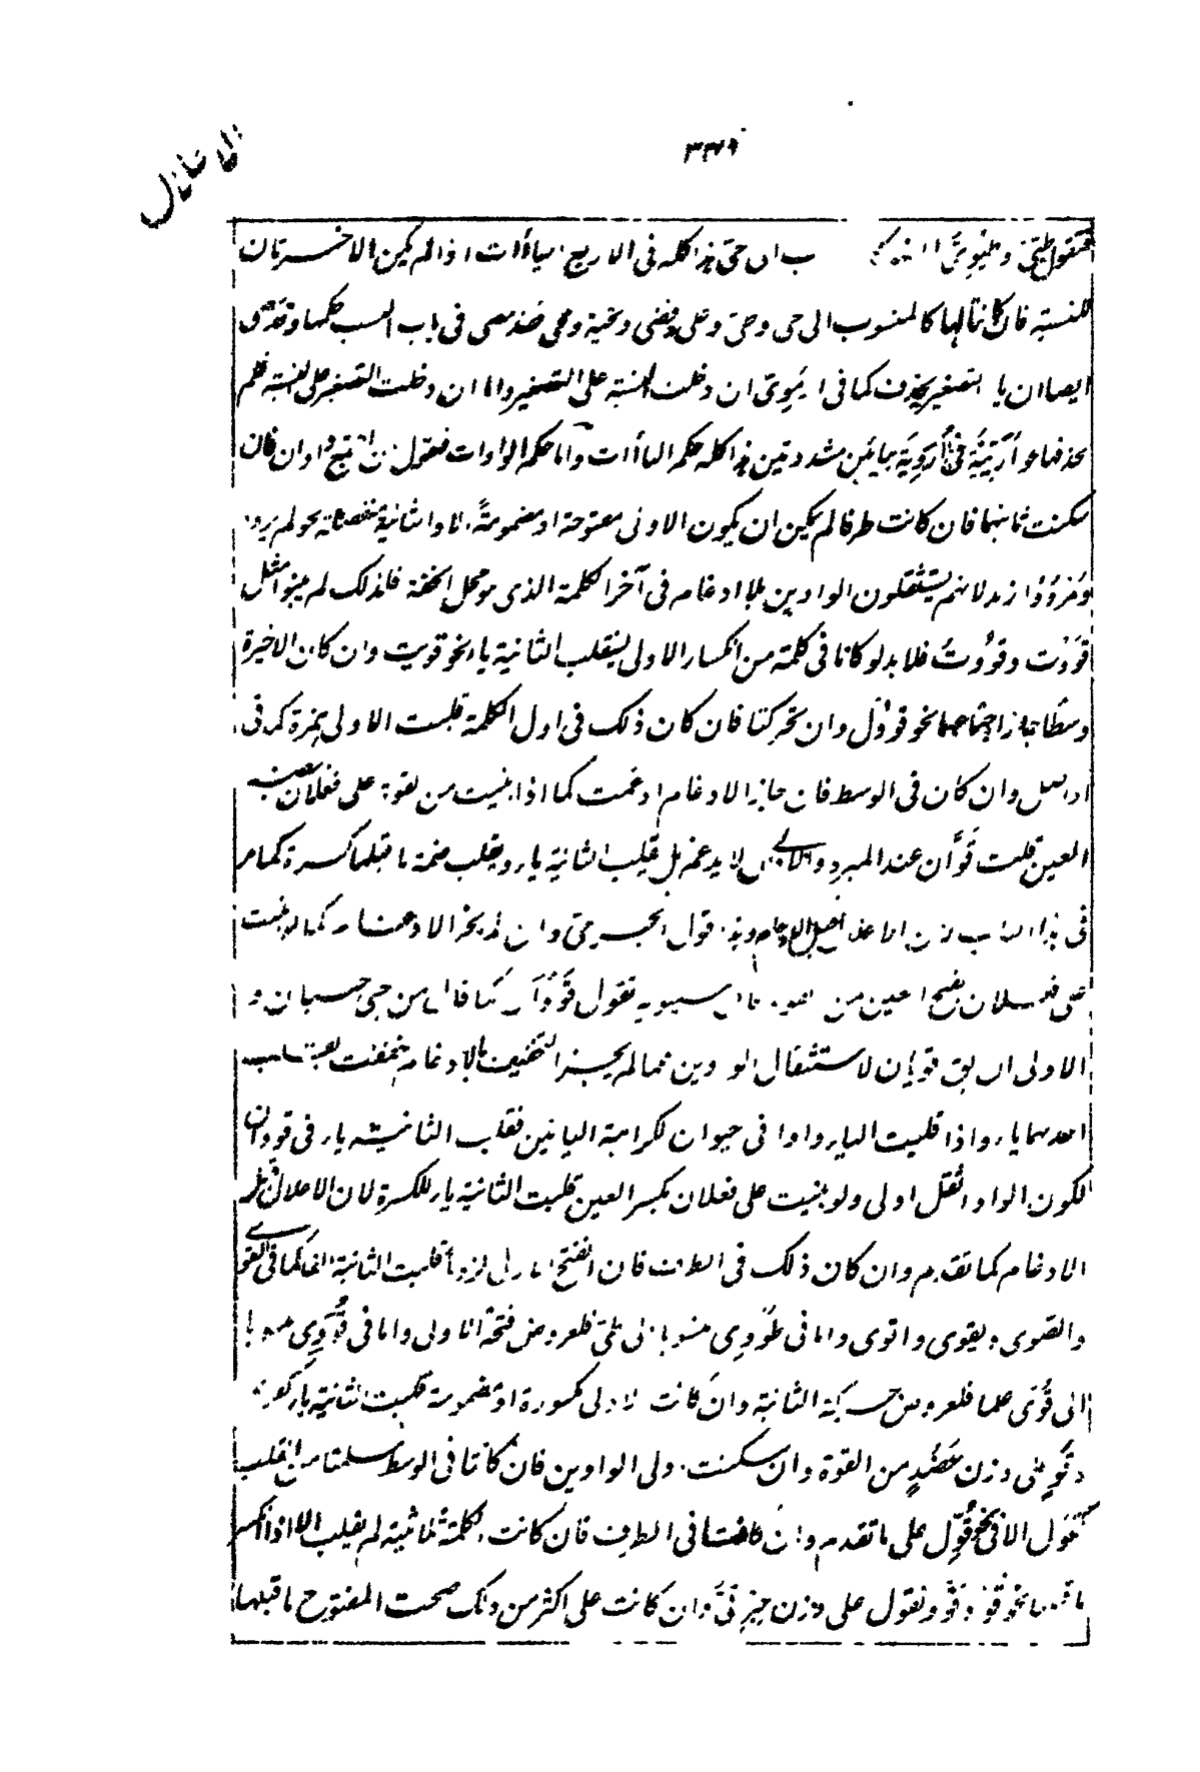 ٣٣٩
فتقول طيّيّ و طيويّ هذا كله فى الاربع ياءات اذا لم يكن الاخيرتان
للنسبة فان كانتا لها كالمنسوب الى حى وحيّ وعلى وقصى وتحية ومحى فقد مضى فى باب النسب حكمها وقد مضى
ايضا ان ياء التصغير يحذف كما فى اميوىّ ان دخلت النسبة على التصغير واما ان دخلت التصغير على النسبة فلم
يحذفها نحو أُرَيّيّة فى أُرْوِيّة بيائين مشددتين هذا كله حكم الياءات واما حكم الواوات فنقول ان اجتمع واوان فان
سكنت ثانيهما فان كانت طرفا لم يمكن ان يكون الاولى مفتوحة او مضمومة الا والثانية منفصلة نحو لم يروو
ومروُوا زيد لانهم يستثقلون الواوين بلا ادغام فى آخر الكلمة الذى هو محل الخفة فلذلك لم يبنوا مثل
قَوَوْت وقوُوتُ فلا بد لو كانا فى كلمة من انكسار الاولى لينقلب الثانية ياء نحو قويت وان كان الاخيرة
وسطا جاز اجتماعهما نحو قوول وان تحركتا فان كان ذلك فى اول الكلمة قلبت الاولى همزة كما فى
اواصل وان كان فى الوسط فان جاز الادغام ادغمت كما اذا بنيت من القوة على فعلان بضم
العين قلت قَوّان عند المبرد والاولى ان لا يدغم بل يقلب الثانية ياء ويقلب ضمة ما قبلها كسرة كما مر
فى هذا الباب من ان الاعلال قبل الادغام وهذا قول الجرمى وان لم يجز الادغام كما لو بنيت
على فعلان بفتح العين من القوة قال سيبويه تقول قَوَوَان كما قال من حى حييان و
الاولى ان يق قويان لاستثقال الواوين مما لم يجز التخفيف بالادغام يخفف بقلب
احدهما ياء واذا قلبت الياء واوا فى حيوان لكراهة اليائين فقلب الثانية ياء فى قووان
لكون الواو اثقل اولى ولو بنيت على فعلان بكسر العين قلبت الثانية ياء للكسرة لان الاعلال قبل
الادغام كما تقدم وان كان ذلك فى الطرف فان انفتح الاولى لزوما قلبت الثانية الفا كما فى القوى
والصوى ويقوى واقوى واما فى طووى منسوبا الى طىّ فلعروض فتحة الاولى واما فى قُوَوِى منسوبا
الى قُوَى علما فلعروض حركة الثانية وان كانت الاولى مكسورة او مضمومة قلبت الثانية ياء كقوى
وقَوٍ على وزن عَضُدٍ من القوة وان سكنت اولى الواوين فان كانتا فى الوسط سلمتا من القلب
كقوول الا فى نحو قُوِّل على ما تقدم وان كانتا فى الطرف فان كانت الكلمة ثلاثية لم يقلب الا اذا انكسر
ما قبلها نحو قوّ وقوّ وتقول على وزن حبر قىّ وان كانت على اكثر من ذلك صحت المفتوح ما قبلها